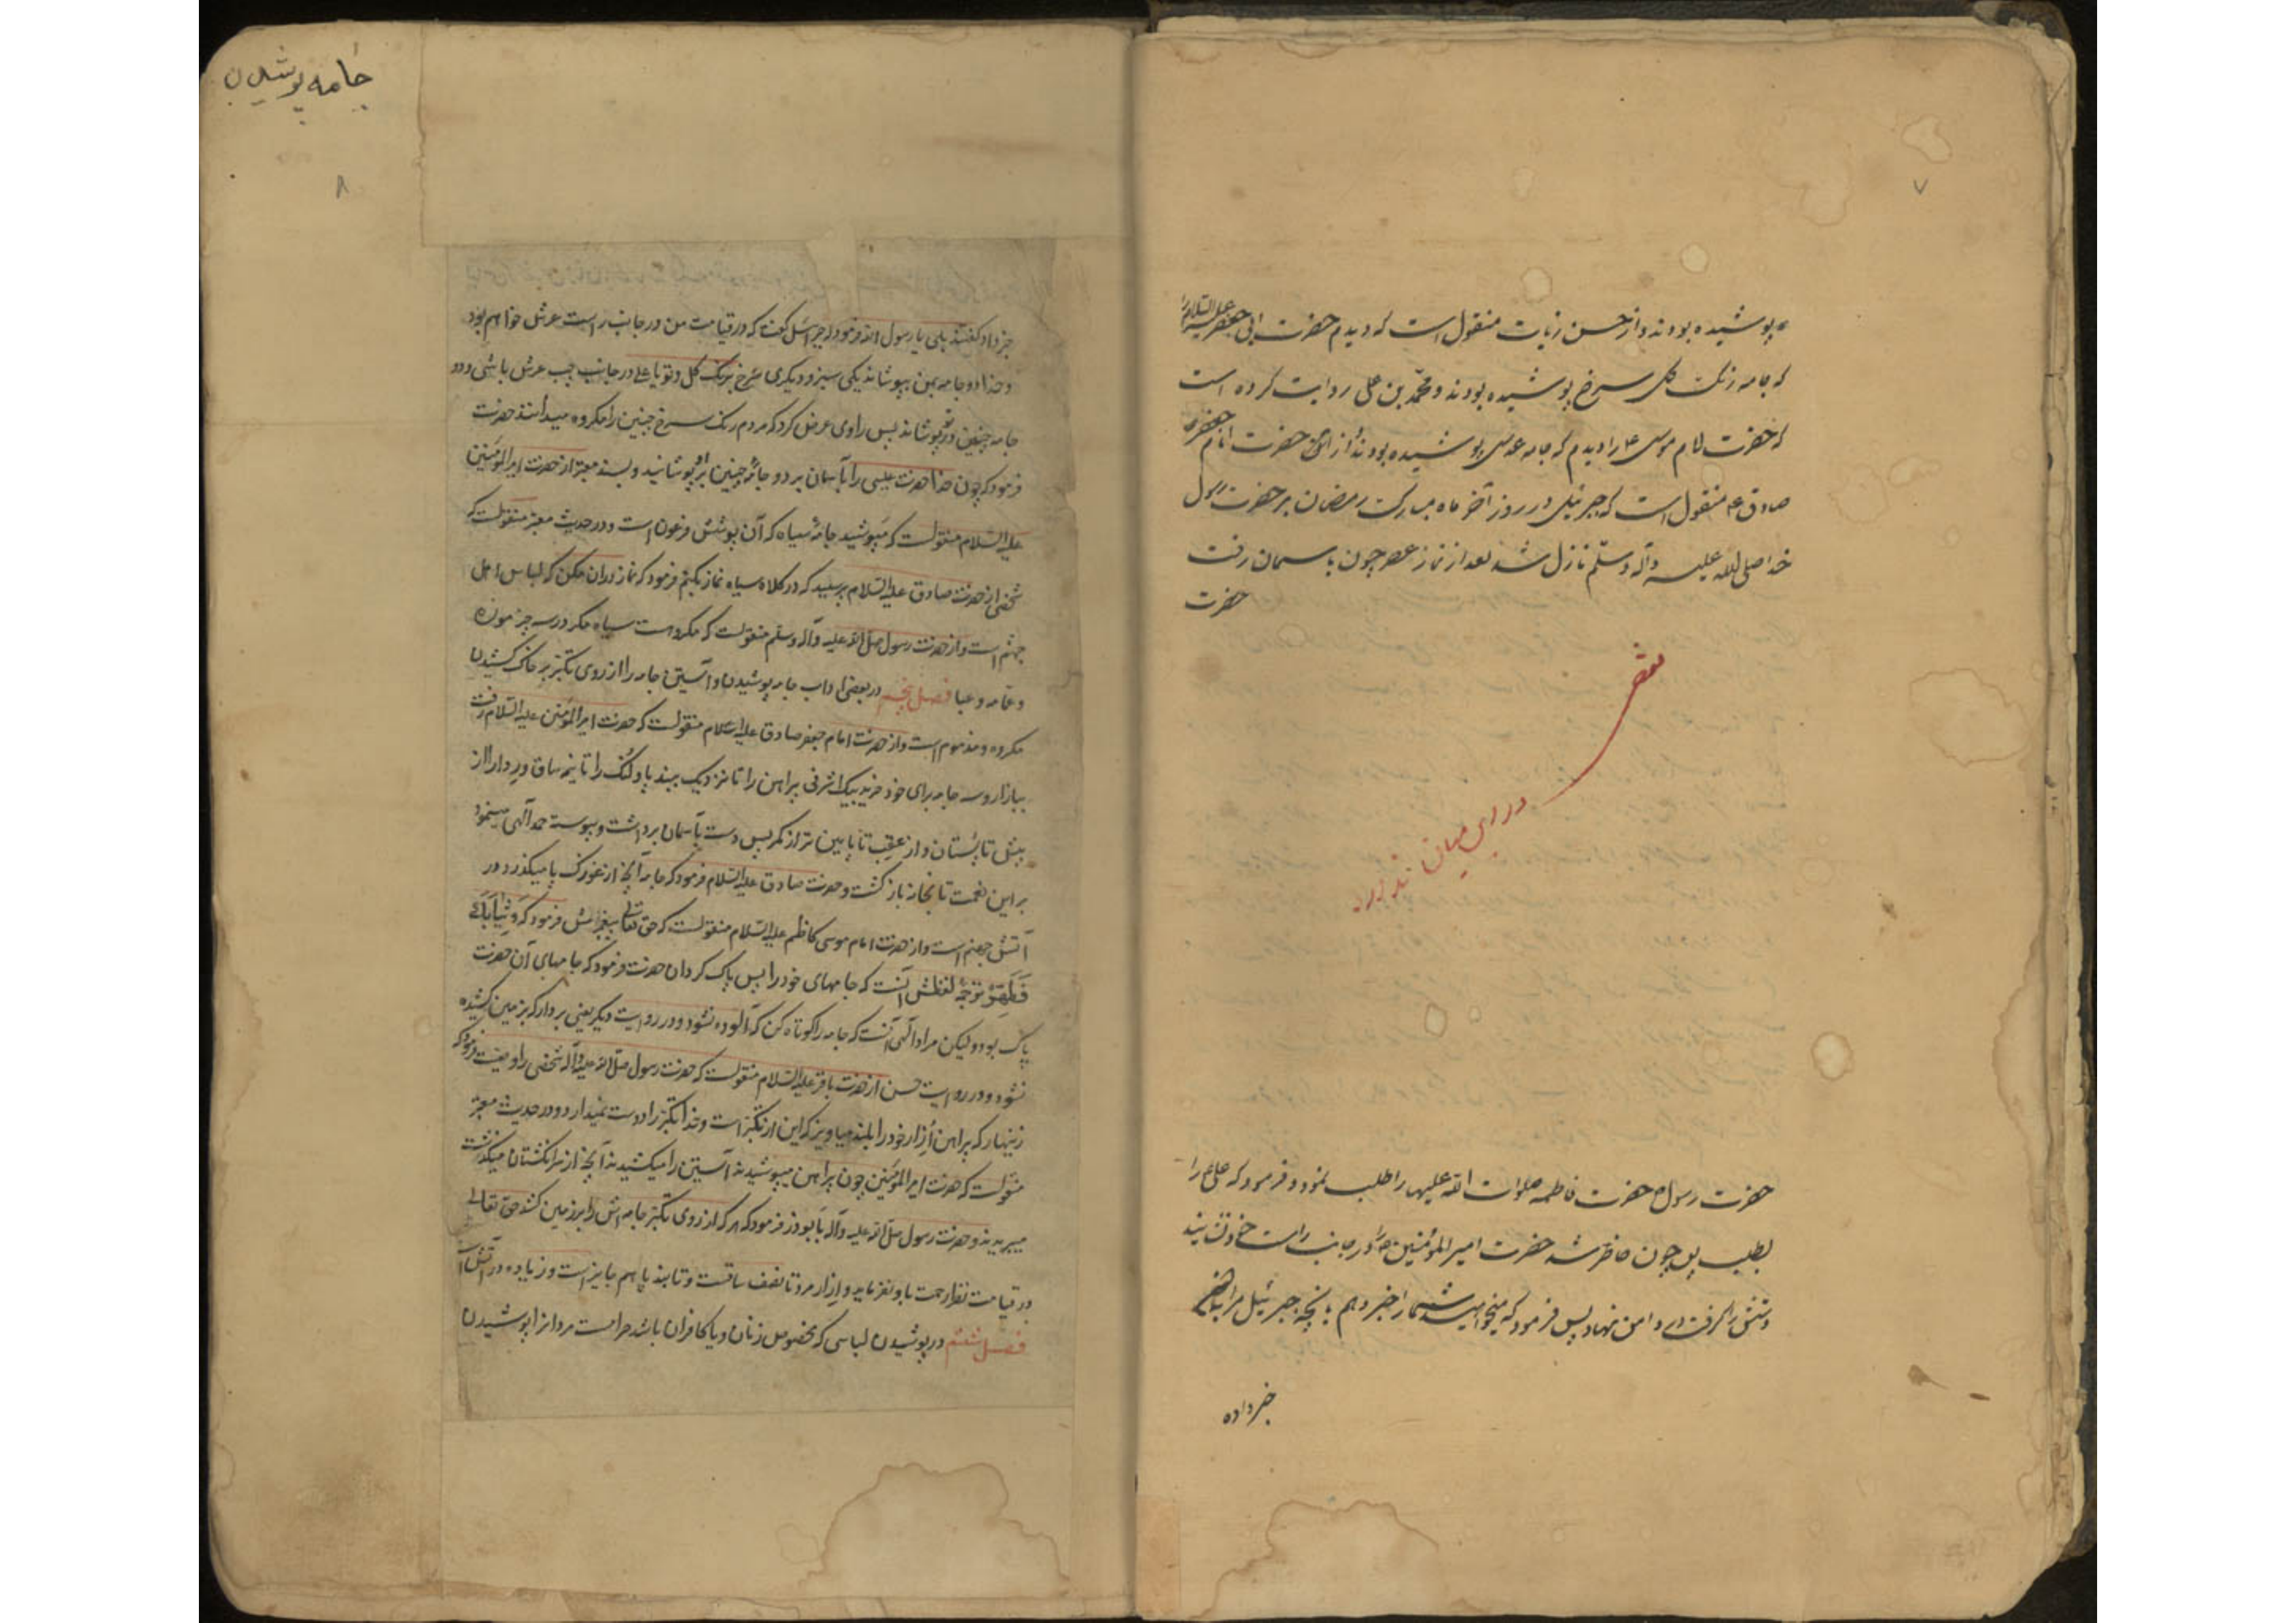 ۷
پوشیده بودند و از حسن زیات منقول است که دیدم حضرت ابی جعفر علیه السلام را
که جامه رنگ گل سرخ پوشیده بودند و محمد بن علی روایت کرده است
که حضرت امام موسی ع را دیدم که جامه عدسی پوشیده بودند و از حضرت امام جعفر
صادق ع منقول است که جبرئیل در روز آخر ماه مبارک رمضان بر حضرت رسول
خدا صلی الله علیه وآله وسلم نازل شد بعد از نماز عصر چون باسمان رفت
حضرت
نقص
در این میان ندارد
حضرت رسول ص حضرت فاطمه صلوات الله علیها را طلب نمود و فرمود که علی ع را
بطلب پس چون حاضر شد حضرت امیر المؤمنین را در جانب راست خود نشانید
دستش را گرفت در دامن نهاد پس فرمود که میخواهید شما را خبر دهم بآنچه جبرئیل مرا بآن
خبر داده
جامه پوشیدن
۸
خبر داد گفتند بلی یا رسول الله فرمود که جبرئیل گفت که در قیامت من در جانب راست عرش خواهم بود
و خدا دو جامه بمن بپوشاند یکی سبز و دیگری سرخ برنگ گل و تو یا علی در جانب چپ عرش باشی و دو
جامه چنین در تو بپوشاند پس راوی عرض کرد که مردم رنگ سرخ چنین را مکروه میدانند حضرت
فرمود که چون خدا حضرت عیسی را بآسمان برد دو جامه چنین بر او پوشانید و بسند معتبر از حضرت امیر المؤمنین
علیه السلام منقولست که مپوشید جامه سیاه که آن پوشش فرعون است و در حدیث معتبر منقولست که
شخصی از حضرت صادق علیه السلام پرسید که در کلاه سیاه نماز بکنم فرمود که نماز در آن مکن که لباس اهل
جهنم است و از حضرت رسول صلی الله علیه وآله وسلم منقولست که مکروهست سیاه مگر در سه چیز موزه
و عمامه و عبا فصل پنجم در بعضی اداب جامه پوشیدن و آستین جامه را از روی تکبر بر خاک کشیدن
مکروه و مذموم است و از حضرت امام جعفر صادق علیه السلام منقولست که حضرت امیر المؤمنین علیه السلام رفت
ببازار و سه جامه برای خود خرید بیک اشرفی پیراهن را تا نزدیک ببند پا و لنگ را تا نیمه ساق و ردا را از
پیش تا پستان و از عقب تا پایین تر از کمر پس دست بآسمان برداشت و پیوسته حمد الهی مینمود
بر این نعمت تا بخانه بازگشت و حضرت صادق علیه السلام فرمود که جامه آنچه از غوزک پا میگذرد در
آتش جهنم است و از حضرت امام موسی کاظم علیه السلام منقولست که حق تعالی پیغمبرش فرمود که وَثِیَابَکَ
فَطَهِّرْ ترجمه لفظش آنست که جامهای خود را پس پاک گردان حضرت فرمود که جامهای آن حضرت
پاک بود و لیکن مراد الهی آنست که جامه را کوتاه کن که آلوده نشود و در روایت دیگر یعنی بردار که بر زمین کشیده
نشود و در روایت حسن از حضرت باقر علیه السلام منقولست که حضرت رسول صلی الله علیه وآله شخصی را وصیت فرمود که
زینهار که پیراهن و ازار خود را بلند میاویز که این از تکبر است و خدا تکبر را دوست نمیدارد و در حدیث معتبر
منقولست که حضرت امیر المؤمنین چون پیراهن میپوشیدند آستین را میکشیدند آنچه از سر انگشتان میگذشت
میبریدند و حضرت رسول صلی الله علیه وآله بابوذر فرمود که هر که از روی تکبر جامه اش را بر زمین کشد حق تعالی
در قیامت نظر رحمت باو نفرماید و ازار مرد تا نصف ساقست و تا بند پا هم جایز است و زیاده در آتش است
فصل ششم در پوشیدن لباسی که مخصوص زنان و یا کافران باشد حرامست مردان را پوشیدن